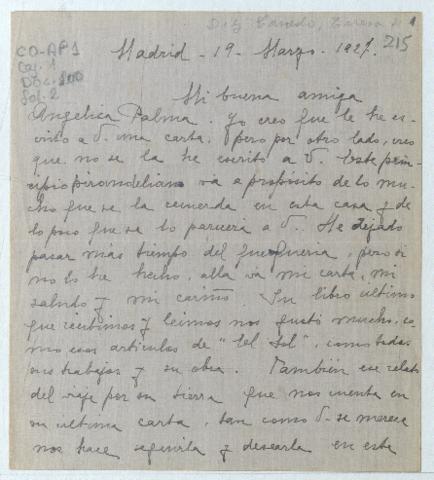 Diez Canedo, Teresa M
215
CO-AP1
Caj. 1
Doc. 200
Fol. 2
Madrid - 19 - Marzo. 1927.
Mi buena amiga
Angelica Palma. Yo creo que le he es-
crito a V. una carta. Pero por otro lado, creo
que no se la he escrito a V. Este prin-
cipio pirandeliano va a proposito de lo mu-
cho que se la recuerda en esta casa y de
lo poco que se lo parecera a V. He dejado
pasar mas tiempo del que queria, pero si
no lo he hecho, alla va mi carta, mi
saludo y mi cariño. Su libro ultimo
que recibimos y leimos nos gustó mucho, co-
mo esos articulos de "El Sol", como todos
sus trabajos y su obra. Tambien ese relato
del viaje por su tierra que nos cuenta en
su ultima carta, tan como V. se merece
nos hace seguirla y desearla en este